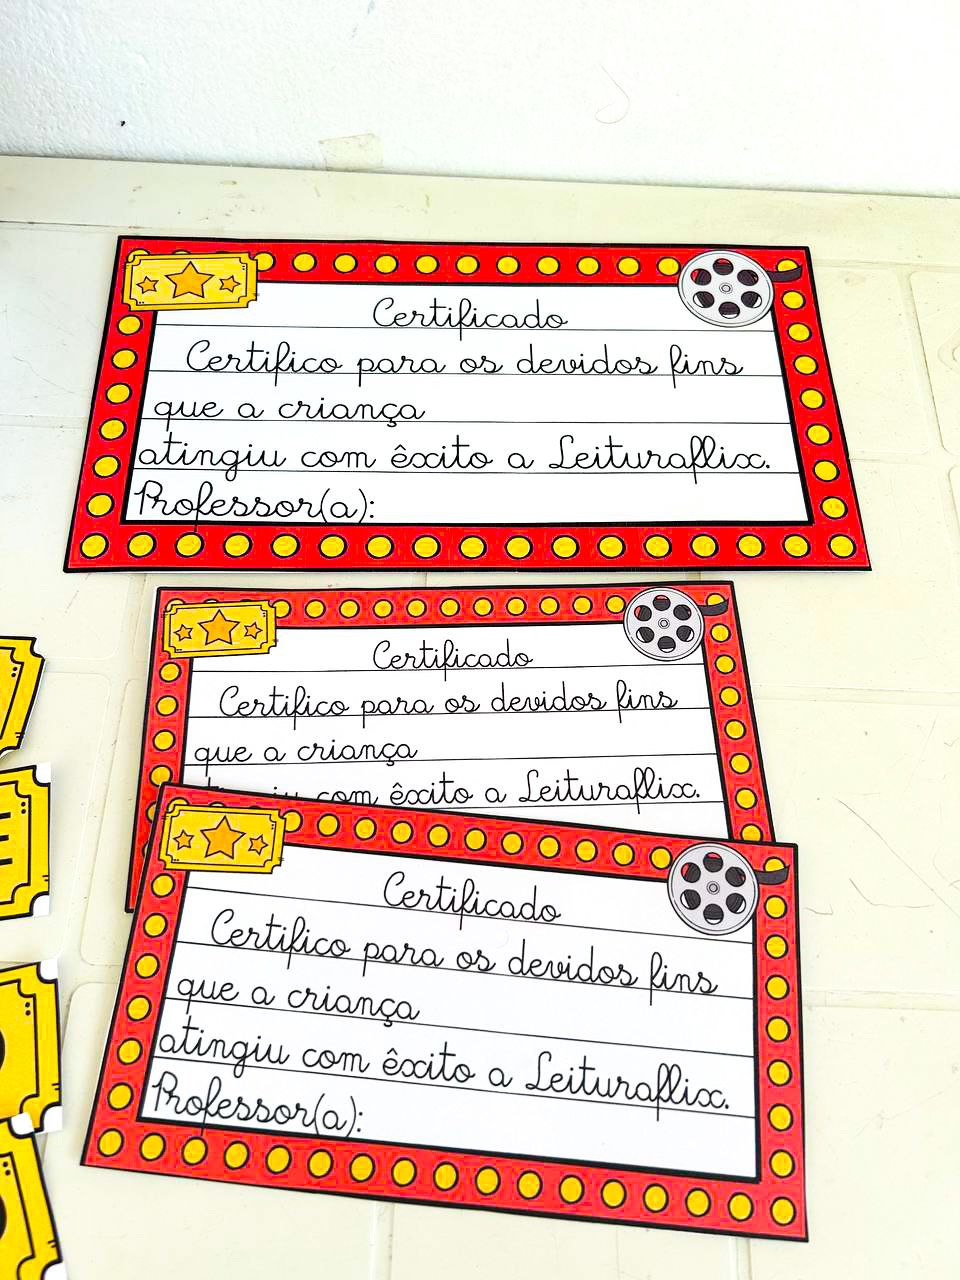 Certificado
Certifico para os devidos fins
que a criança
atingiu com êxito a Leituraflix.
Professor(a):
Certificado
Certifico para os devidos fins
que a criança
com êxito a Leituraflix.
Certificado
Certifico para os devidos fins
que a criança
atingiu com êxito a Leituraflix.
Professor(a):